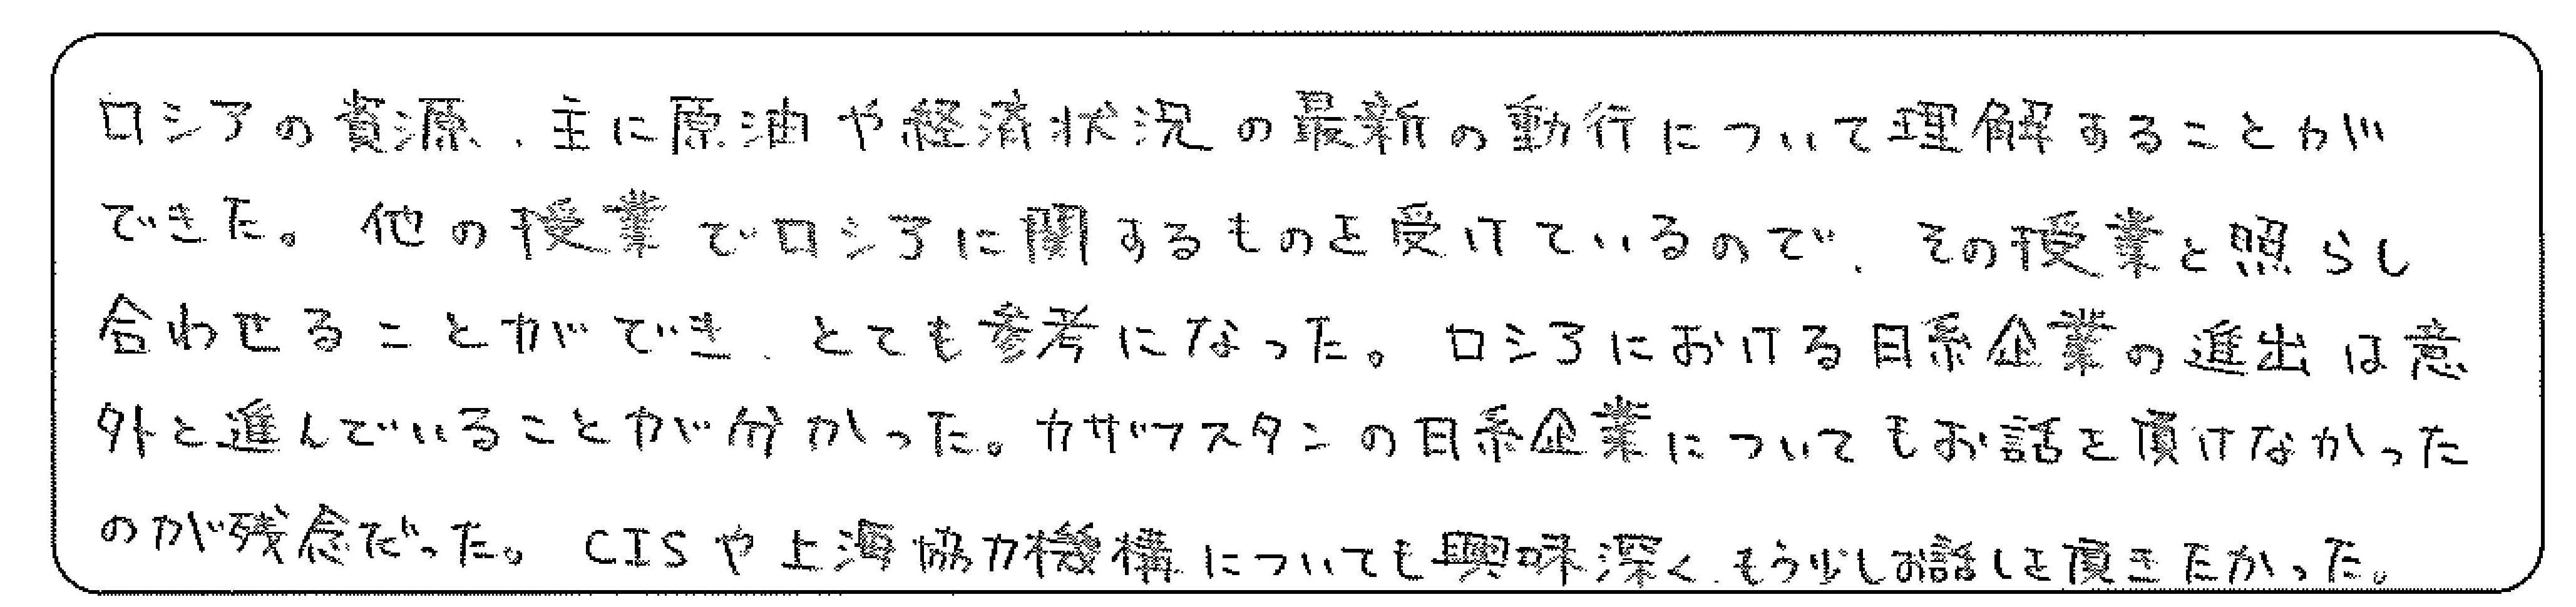 ロシアの資源、主に原油や経済状況の最新の動行について理解することが
できた。他の授業でロシアに関するものを受けているので、その授業と照らし
合わせることができ、とても参考になった。ロシアにおける日系企業の進出は意
外と進んでいることが分かった。カザフスタンの日系企業についてもお話を頂けなかった
のが残念だった。CISや上海協力機構についても興味深く、もう少しお話しを頂きたかった。